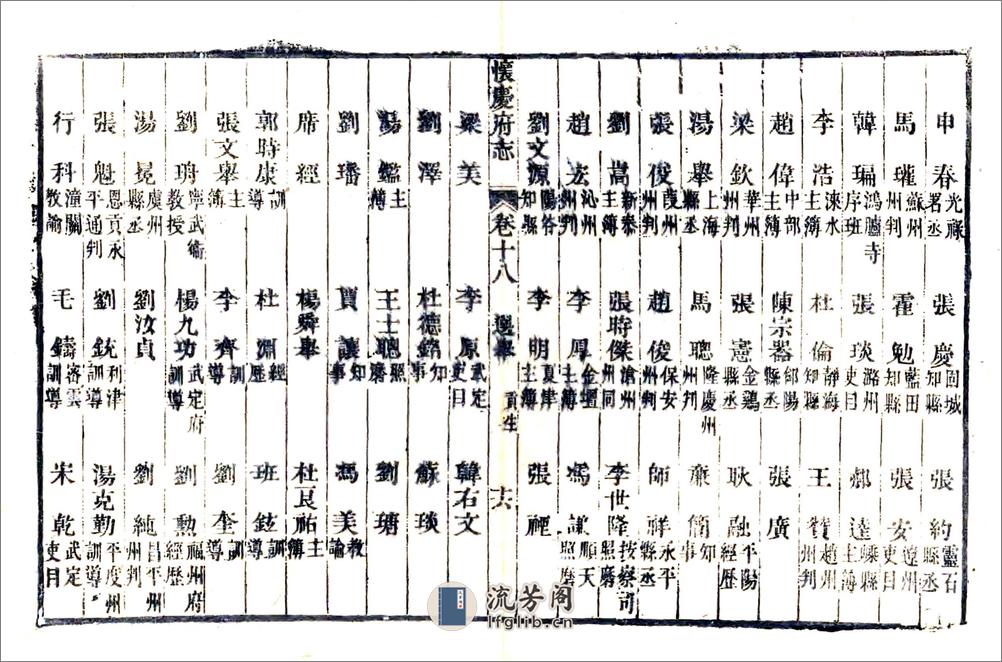 申春 光祿署丞 張慶 固城知縣 張約 靈石縣丞
馬瓘 蘇州州判 霍勉 藍田知縣 張安 遼州吏目
韓 鴻臚寺序班 張琰 潞州吏目 郝逵 嵊縣主簿
李浩 淶水主簿 杜倫 靜海知縣 王賢 趙州州判
趙偉 中部主簿 陳宗器 郃陽縣丞 張廣
梁欽 華州州判 張憲 金鷄縣丞 耿融 平陽經歷
湯舉 上海縣丞 馬聰 隆慶州州判 亷簡 知事
張俊 葭州州判 趙俊 保安州判 師祥 永平縣丞
劉嵩 新泰主簿 張時傑 滄州州同 李世隆 按察司照磨
趙宏 沁州州判 李厚 金壇主簿 馮謙 順天照磨
劉文源 陽谷知縣 李明 夏津主簿 張
懷慶府志 卷十八 選舉 貢生 十六
梁美 李原 武定吏目 韓右文
劉澤 杜德銘 知事 蘇琰
湯鑑 主簿 王士聰 照磨 劉瑭
劉璠 賈讓 知事 馮美 教諭
席經 楊舜舉 杜良祐 主簿
郭時康 訓導 杜淵 經歷 班鉉 訓導
張文舉 主簿 李齊 訓導 劉奎 訓導
劉 寧武衛教授 楊九功 武定府訓導 劉勲 福州府經歷
湯冕 虞州縣丞 劉汝貞 劉純 昌平州州判
張魁 恩貢永平通判 劉銃 利津訓導 湯克勤 平度州訓導
行科 潼關教諭 毛鑄 密雲訓導 宋乾 武定吏目
流芳阁
lfglib.cn